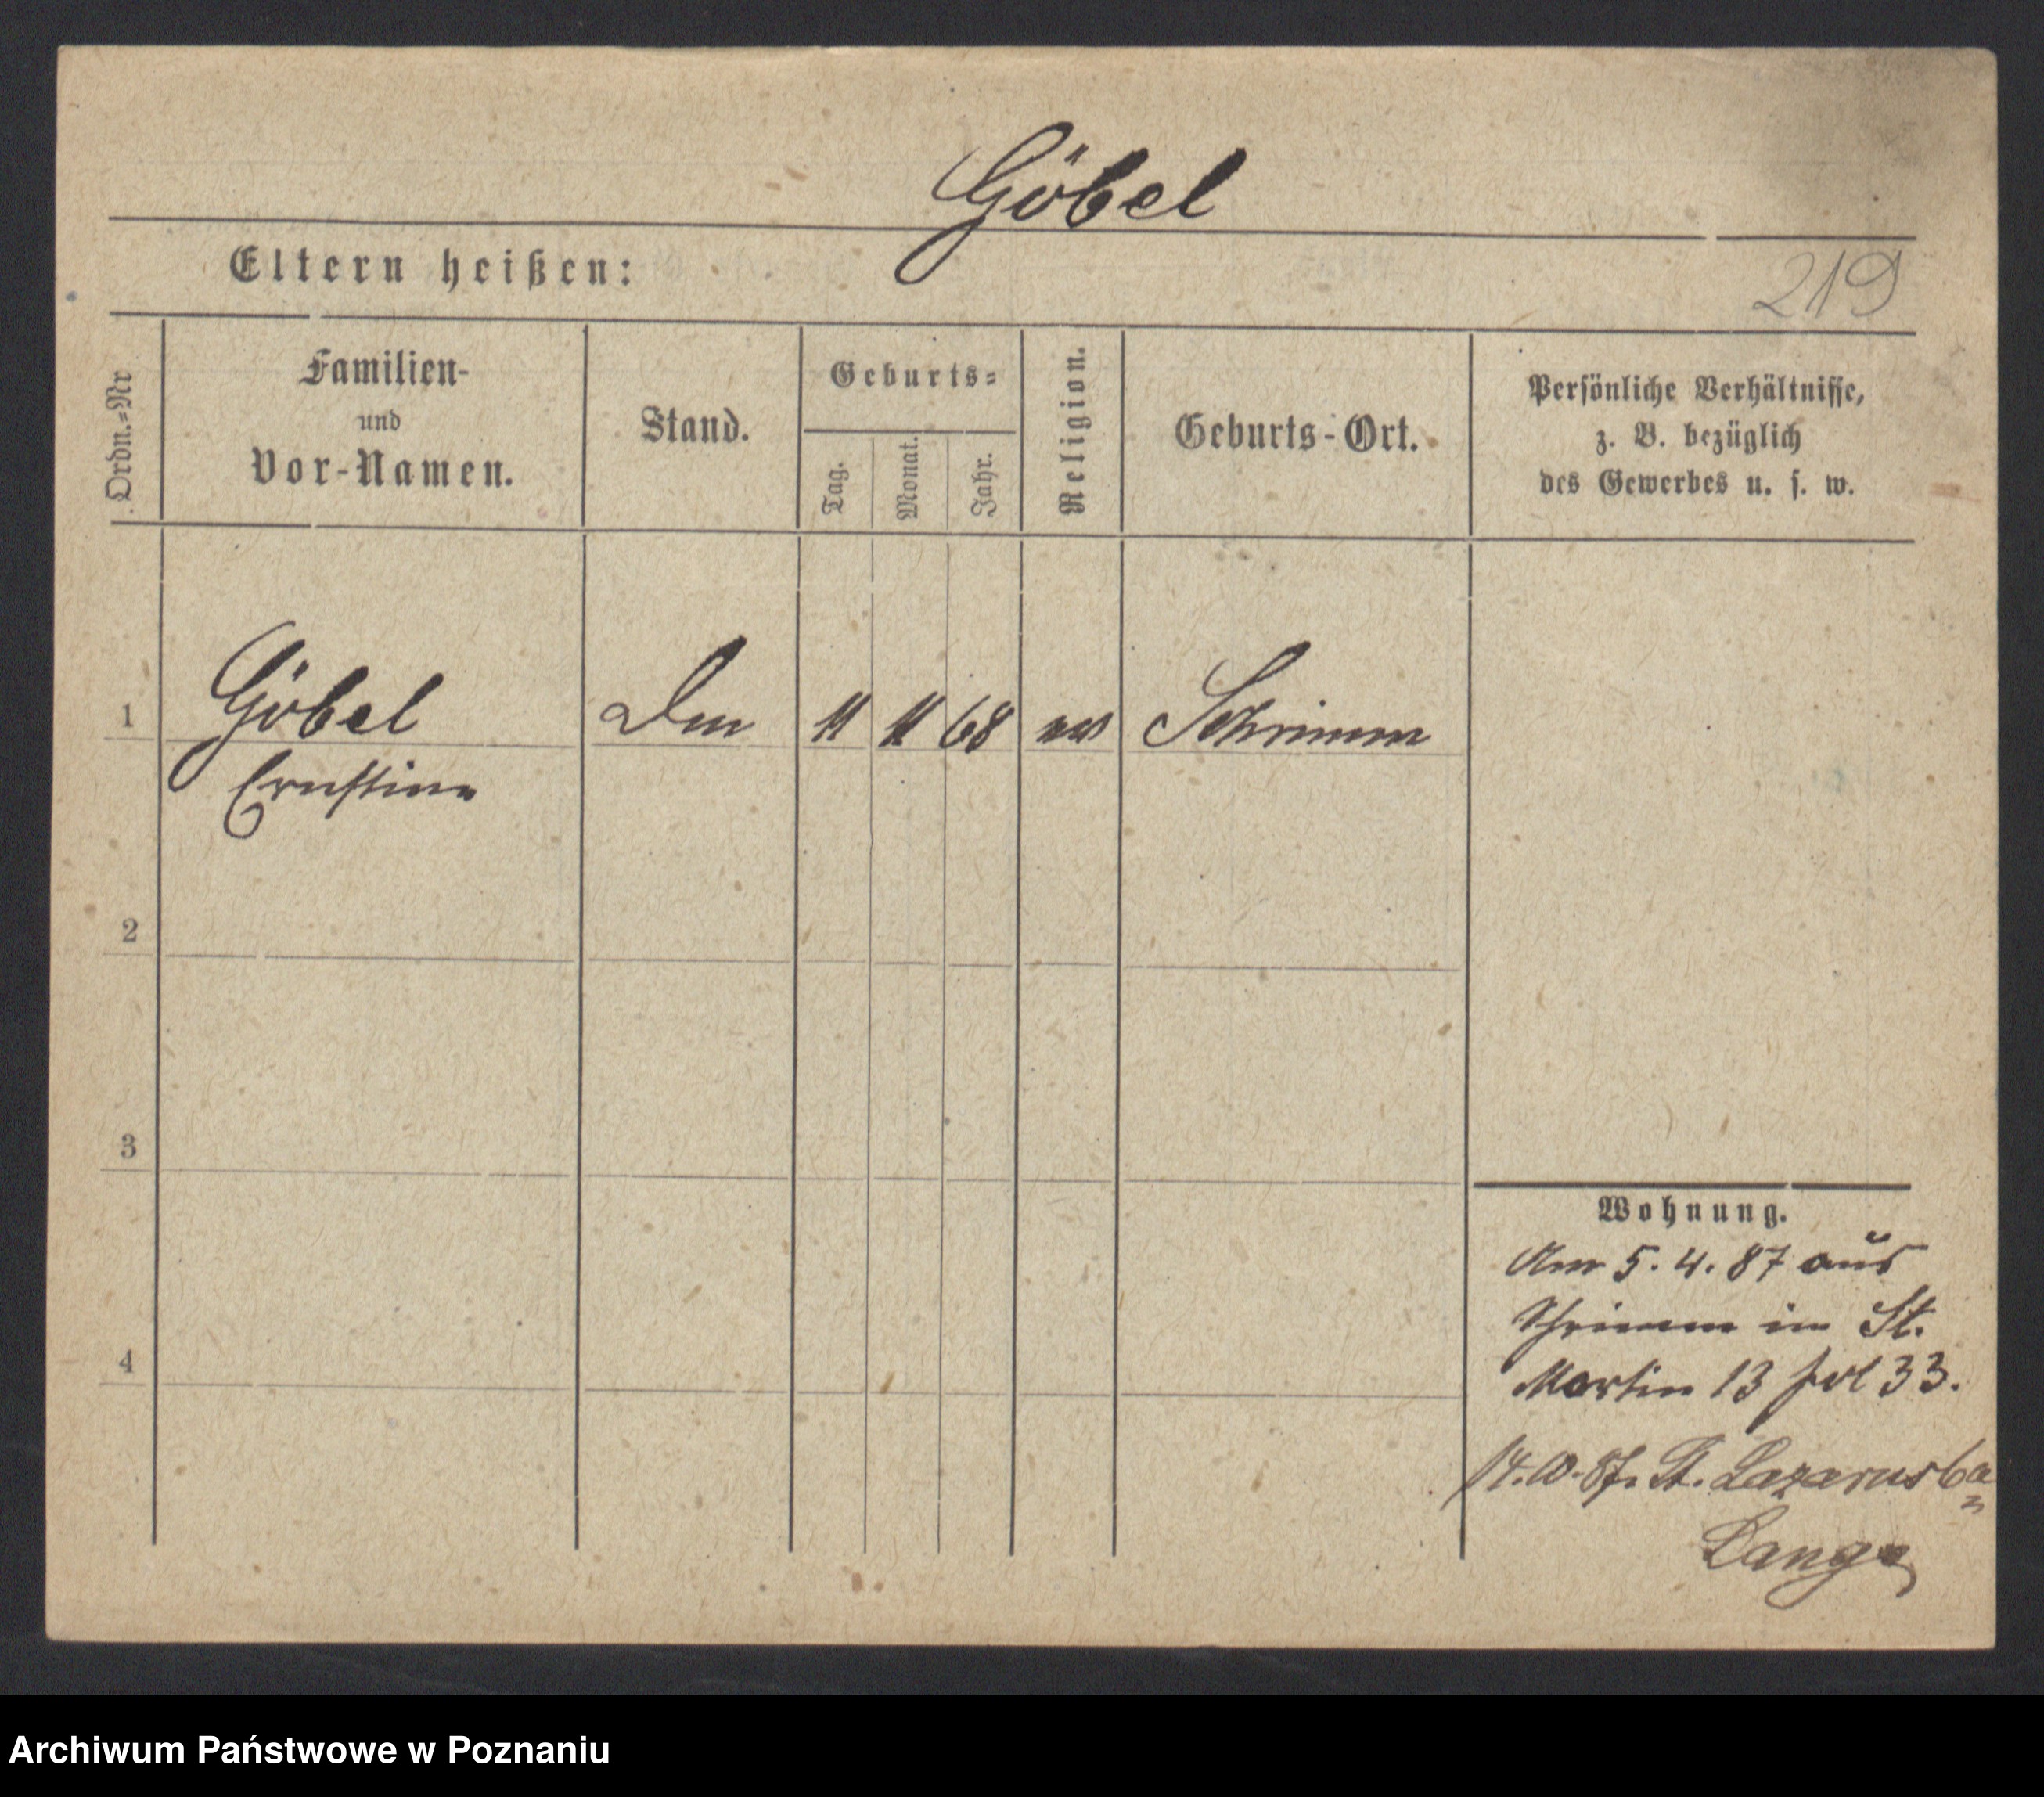 Göbel
Eltern heißen:
219
Ordn.=Nr
Familien-
und
Vor-Namen.
Stand.
Geburts=
Tag.
Monat.
Jahr.
Religion.
Geburts-Ort.
Persönliche Verhältnisse,
z. B. bezüglich
des Gewerbes u. s. w.
1 Göbel 11 11 68 ev Schrimm
Ernstine
2
3
4
Wohnung.
Am 5. 4. 87 aus
Schrimm in St.
Martin 13 fol 33.
14.10.87. St. Lazarus 6a
Lange
Archiwum Państwowe w Poznaniu